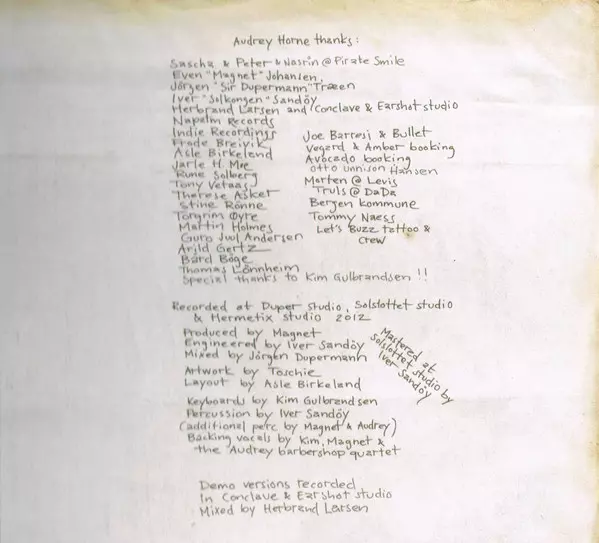 Audrey Horne thanks:
Sascha & Peter & Nasrin @ Pirate Smile
Even "Magnet" Johansen
Jörgen "Sir Dupermann" Træen
Iver "Solkongen" Sandöy
Herbrand Larsen and Conclave & Earshot studio
Napalm Records
Indie Recordings
Frode Breivik
Asle Birkeland
Jarle H. Moe
Rune Solberg
Tony Vetaas
Therese Asker
Stine Rönne
Torgrim Øyre
Martin Holmes
Guro Juul Andersen
Arild Gertz
Bård Böge
Thomas Lönnheim
Special thanks to Kim Gulbrandsen !!
Joe Barresi & Bullet
Vegard & Amber booking
Avocado booking
Otto Unnison Hansen
Morten @ Levis
Truls @ DaDa
Bergen kommune
Tommy Naess
Let's Buzz tattoo &
crew
Recorded at Duper studio, Solslottet studio
& Hermetix studio 2012
Produced by Magnet
Engineered by Iver Sandöy
Mixed by Jörgen Dupermann
Mastered at
Solslottet studio by
Iver Sandöy
Artwork by Toschie
Layout by Asle Birkeland
Keyboards by Kim Gulbrandsen
Percussion by Iver Sandöy
(additional perc by Magnet & Audrey)
Backing vocals by Kim, Magnet &
the Audrey barbershop quartet
Demo versions recorded
In Conclave & Earshot studio
Mixed by Herbrand Larsen